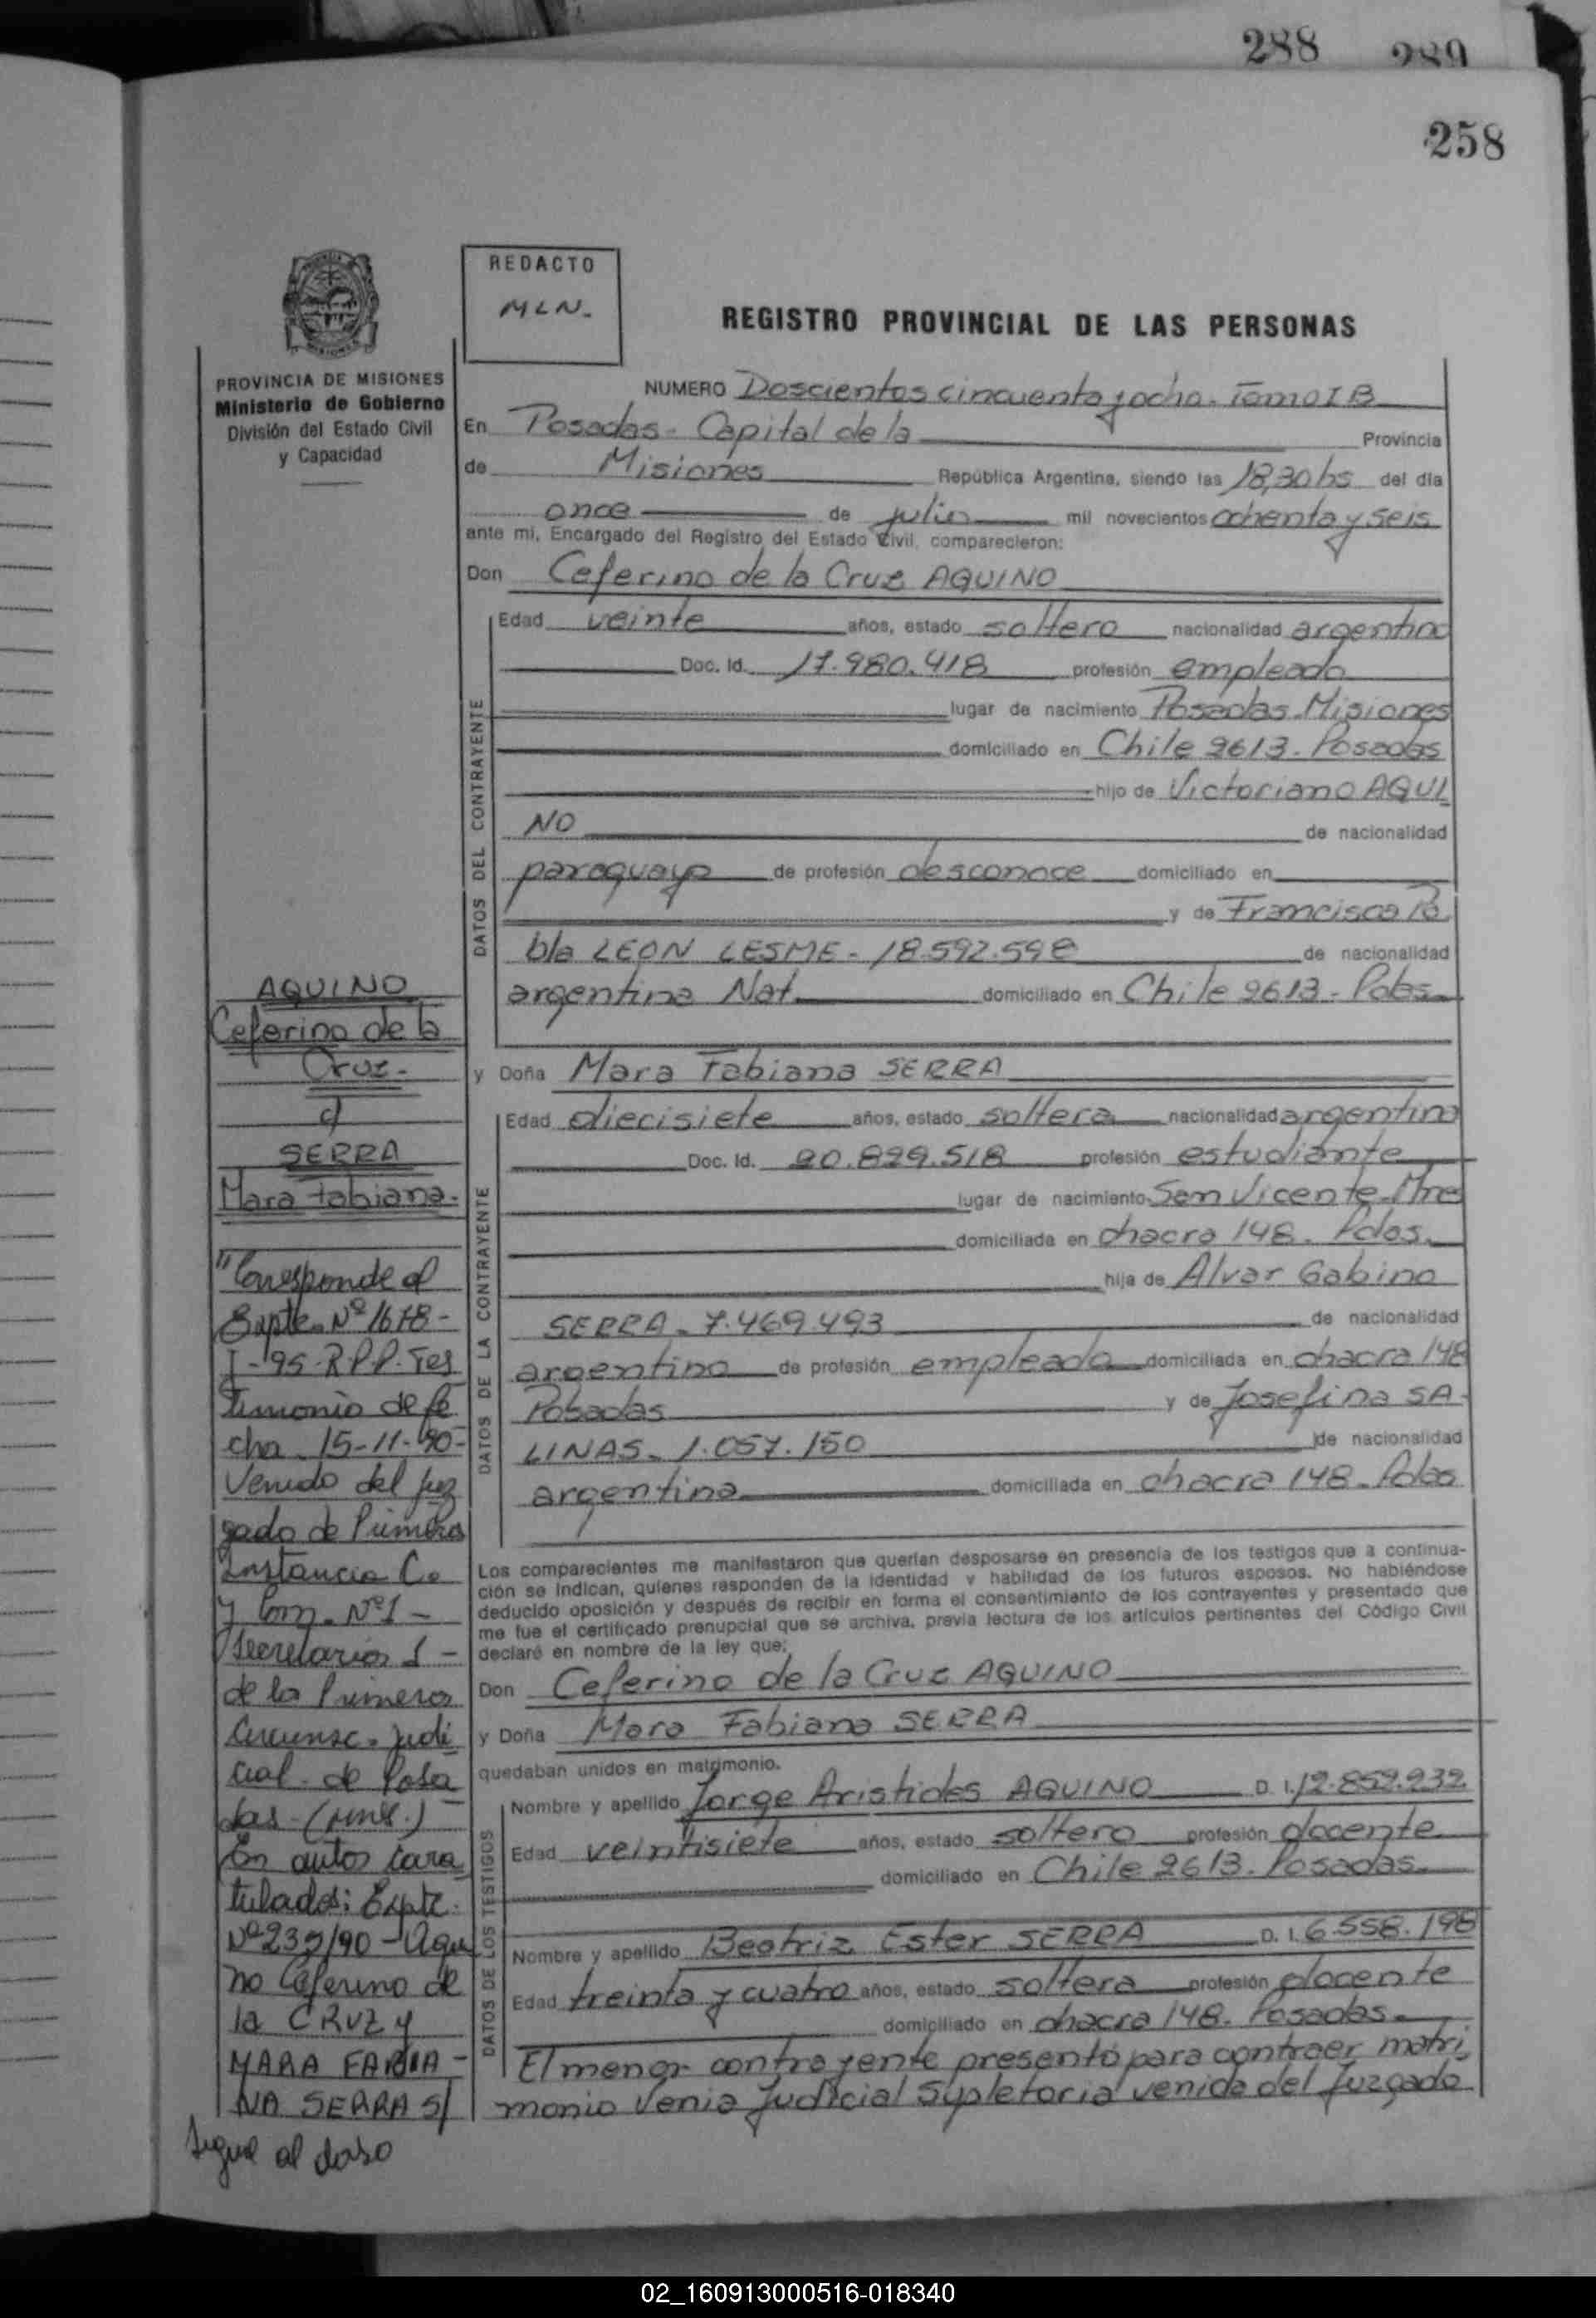 288 289
258
REDACTO
MLN.
REGISTRO PROVINCIAL DE LAS PERSONAS
PROVINCIA DE MISIONES
Ministerio de Gobierno
División del Estado Civil
y Capacidad
NUMERO Doscientos cincuenta y ocho - Tomo I B
En Posadas - Capital de la Provincia
de Misiones República Argentina, siendo las 18,30 hs del día
once de julio mil novecientos ochenta y seis
ante mi, Encargado del Registro del Estado Civil, comparecieron:
Don Ceferino de la Cruz AQUINO
DATOS DEL CONTRAYENTE
Edad veinte años, estado soltero nacionalidad argentino
Doc. Id. 17.980.418 profesión empleado
lugar de nacimiento Posadas-Misiones
domiciliado en Chile 2613 - Posadas
hijo de Victoriano AQUI
NO de nacionalidad
paraguayo de profesión desconoce domiciliado en
y de Francisca Pa
bla LEON LESME - 18.592.598 de nacionalidad
argentina Nat. domiciliado en Chile 2613 - Pdas
y Doña Mara Fabiana SERRA
DATOS DE LA CONTRAYENTE
Edad diecisiete años, estado soltera nacionalidad argentina
Doc. Id. 20.829.518 profesión estudiante
lugar de nacimiento San Vicente - Mnes
domiciliada en chacra 148. Pdas.
hija de Alvar Gabino
SERRA - 7.469.493 de nacionalidad
argentino de profesión empleado domiciliada en chacra 148
Posadas y de Josefina SA-
LINAS - 1.057.150 de nacionalidad
argentina domiciliada en chacra 148 - Pdas
Los comparecientes me manifestaron que querían desposarse en presencia de los testigos que a continua-
ción se indican, quienes responden de la identidad y habilidad de los futuros esposos. No habiéndose
deducido oposición y después de recibir en forma el consentimiento de los contrayentes y presentado que
me fue el certificado prenupcial que se archiva, previa lectura de los artículos pertinentes del Código Civil
declaré en nombre de la ley que:
Don Ceferino de la Cruz AQUINO
y Doña Mara Fabiana SERRA
quedaban unidos en matrimonio.
DATOS DE LOS TESTIGOS
Nombre y apellido Jorge Aristides AQUINO D. I. 12.852.232
Edad veintisiete años, estado soltero profesión docente
domiciliado en Chile 2613 - Posadas
Nombre y apellido Beatriz Ester SERRA D. I. 6.558.198
Edad treinta y cuatro años, estado soltera profesión docente
domiciliado en chacra 148. Posadas
El menor contrayente presentó para contraer matri
monio Venia Judicial Supletoria venida del Juzgado
AQUINO
Ceferino de la
Cruz -
c/
SERRA
Mara Fabiana -
"Corresponde al
Expte. Nº 1678 -
I - 95 - R.P.P. Tes
timonio de fe
cha 15-11-90 -
Venido del Juz
gado de Primera
Instancia C.
y Com. Nº 1 -
Secretaria 1 -
de la Primera
Circunsc. Judi
cial de Posa
das -
En autos cara
tulados: Expte.
Nº 239/90 - Aqui
no Ceferino de
la CRUZ y
MARA FABIA -
NA SERRA S/
Sigue al dorso
02_160913000516-018340